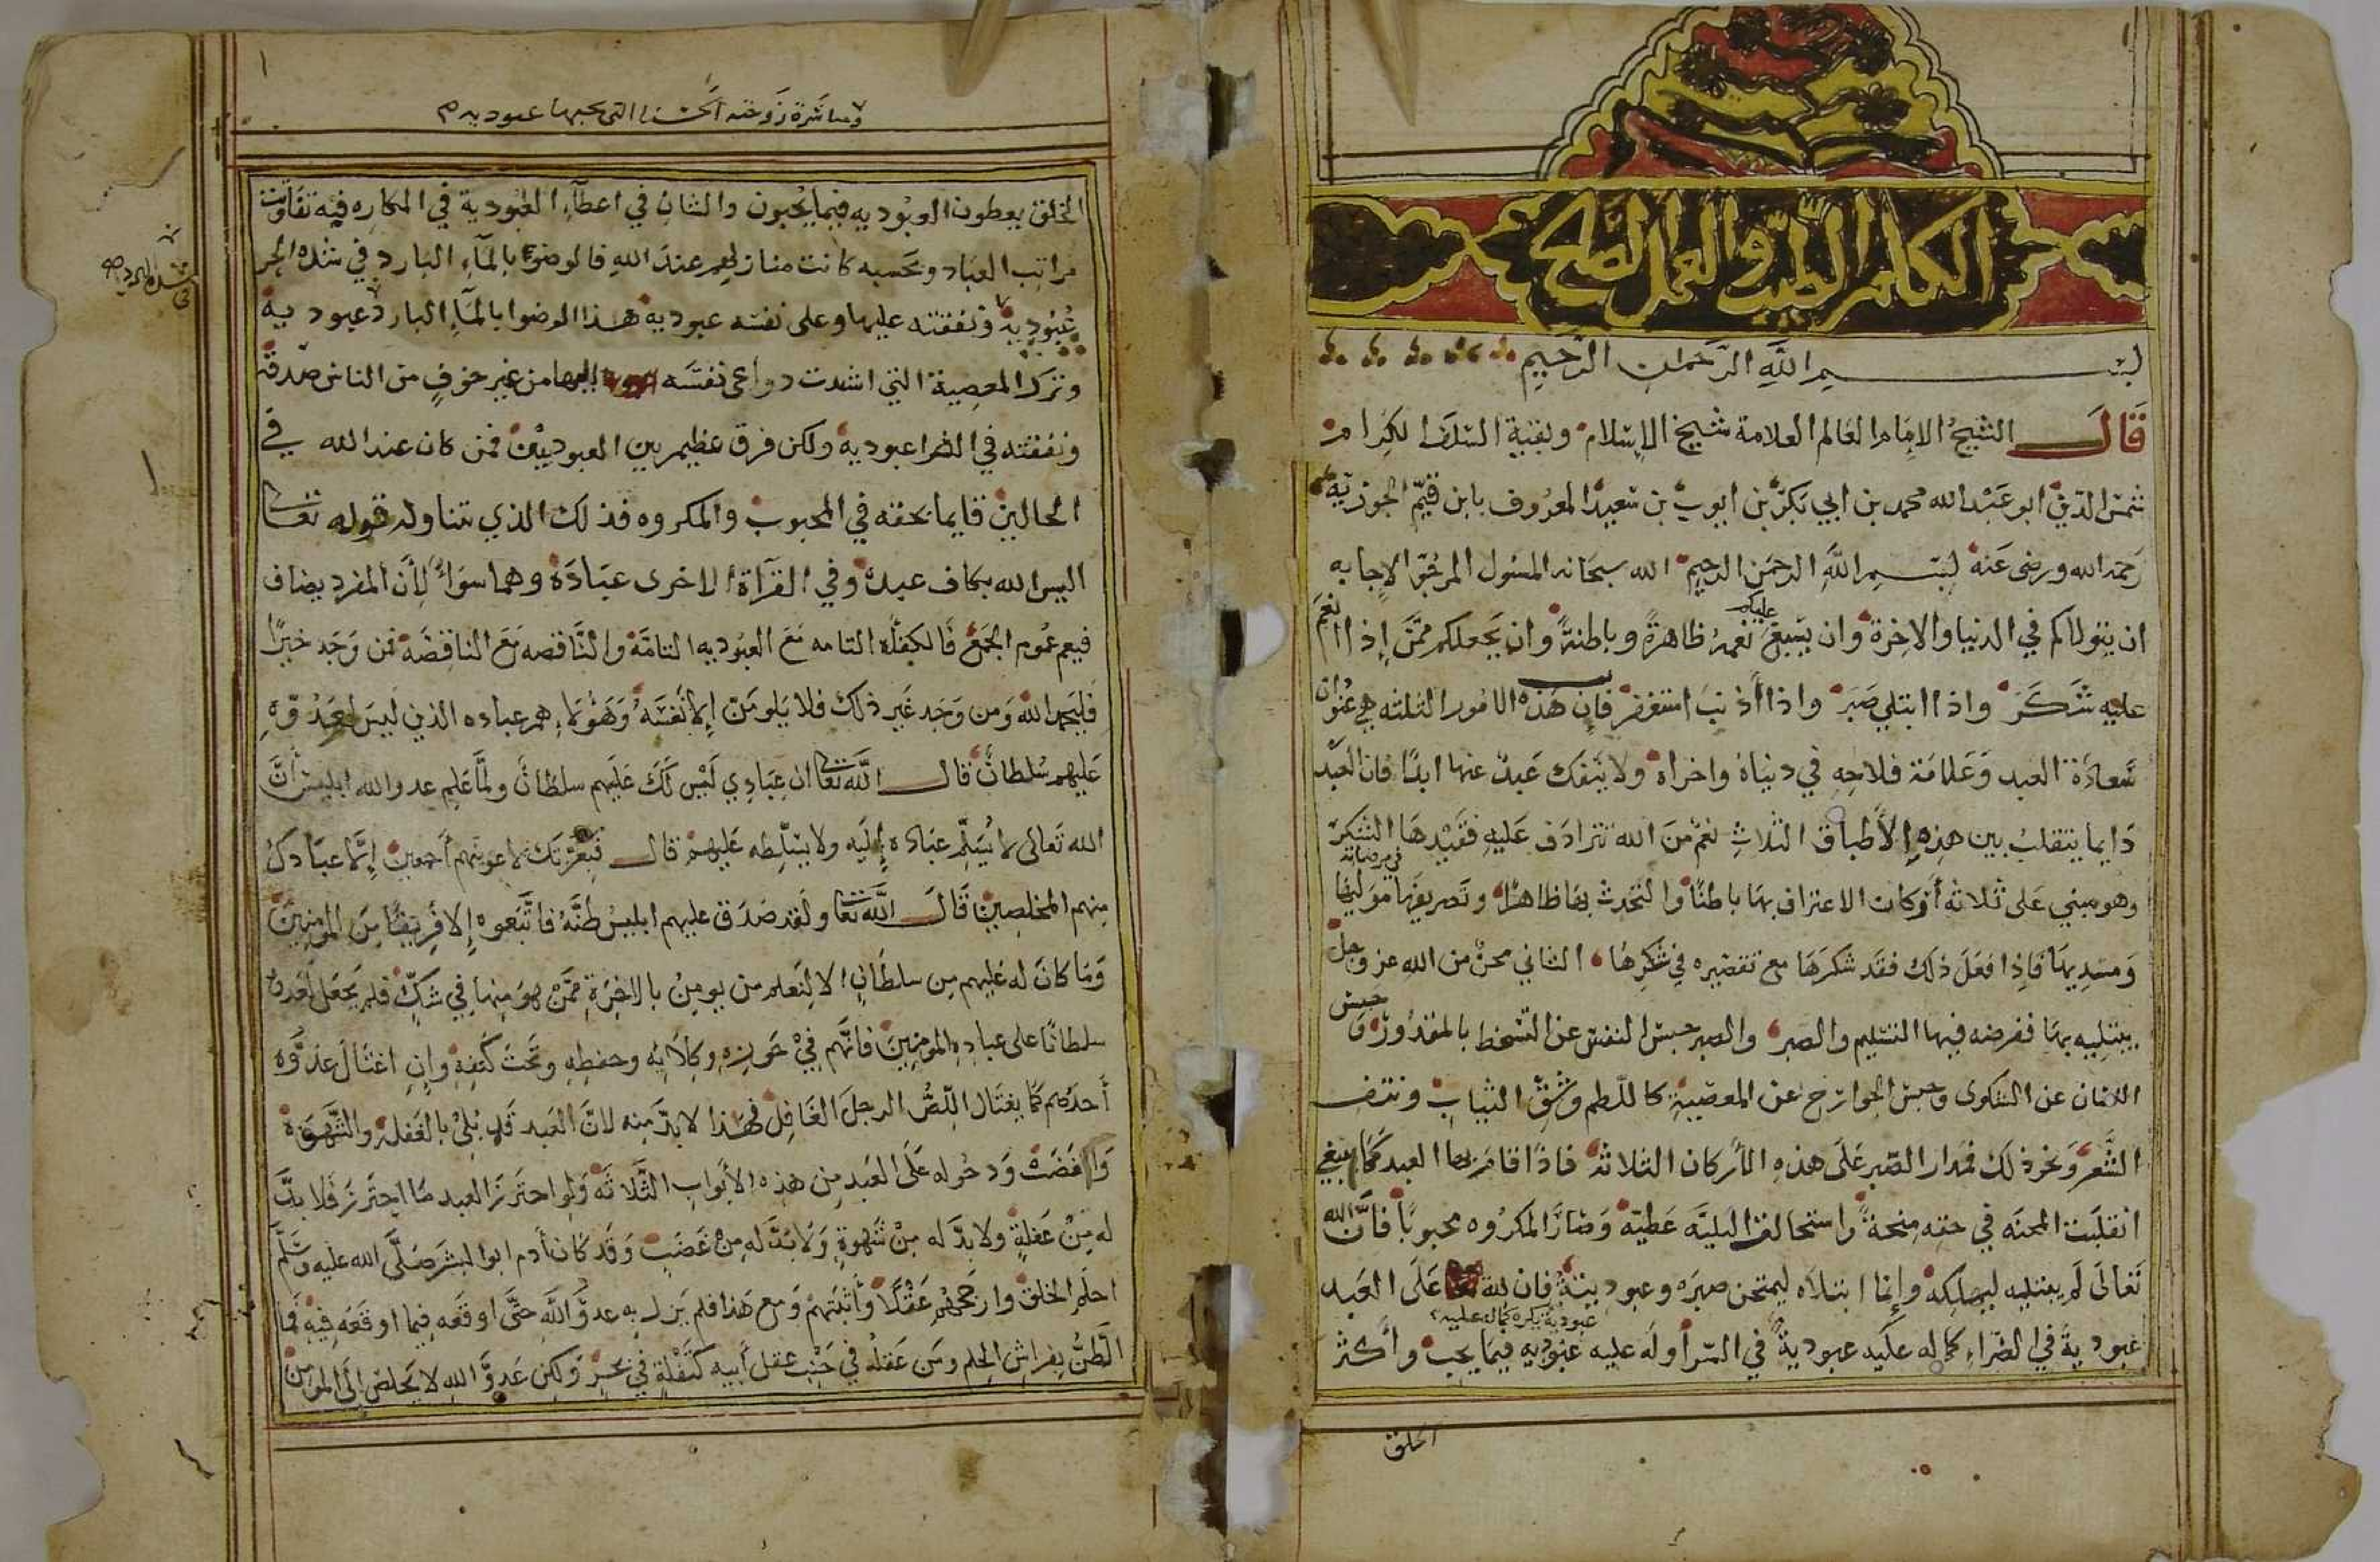 الكلم الطيب والعمل الصلح
بسم الله الرحمان الرحيم
قال الشيخ الامام العالم العلامة شيخ الاسلام وبقية السلف الكرام
شمس الدين ابو عبد الله محمد بن ابي بكر بن ايوب بن سعيد المعروف بابن قيم الجوزية
رحمه الله ورضى عنه بسم الله الرحمن الرحيم الله سبحانه المسئول المرجو الاجابه
ان يتولاكم في الدنيا والاخرة وان يسبغ عليكم نعمه ظاهرة وباطنة وان يجعلكم ممن إذا انعم
عليه شكر واذا ابتلي صبر واذا أذنب استغفر فان هذه الامور الثلثه هي عنوان
سعادة العبد وعلامة فلاحه في دنياه واخراه ولا ينفك عبد عنها ابدا فان العبد
دايما يتقلب بين هذه الأطباق الثلاث نعم من الله تترادف عليه فقيدها الشكر
وهو مبني على ثلاثة أركان الاعتراف بها باطنا والتحدث بها ظاهرا وتصريفها في مرضاة موليها
ومسديها فإذا فعل ذلك فقد شكرها مع تقصيره في شكرها الثاني محن من الله عز وجل
يبتليه بها ففرضه فيها التسليم والصبر والصبر حبس النفس عن التسخط بالمقدور وحبس
اللسان عن الشكوى وحبس الجوارح عن المعصية كاللطم وشق الثياب ونتف
الشعر ونحو ذلك فمدار الصبر على هذه الأركان الثلاثة فاذا قام بها العبد كما ينبغي
انقلبت المحنه في حقه منحة واستحالت البليه عطية وصار المكروه محبوبا فان الله
تعالى لم يبتليه ليهلكه وإنما ابتلاه ليمتحن صبره وعبوديته فان لله تعا على العبد
عبودية في الضراء كما له عليه عبودية في السرا وله عليه عبودية فيما يكره كما له عليه عبوديه فيما يحب وأكثر
الخلق
ومباشرة زوجته الحسنا التي يحبها عبوديه
الخلق يعطون العبوديه فيما يحبون والشان في اعطاء العبودية في المكاره فيه تفاوتت
مراتب العباد وبحسبه كانت منازلهم عند الله فالوضوء بالماء البارد في شدة الحر
في شدة البرد صح
عبودية ونفقته عليها وعلى نفسه عبودية هذا الوضوا بالماء البارد عبودية
وترك المعصية التي اشتدت دواعى نفسه إليها من غير خوف من الناس صدقة
ونفقته في الضرا عبودية ولكن فرق عظيم بين العبوديتين فمن كان عند الله في
الحالين قايما بحقه في المحبوب والمكروه فذلك الذي تناوله قوله تعا
اليس الله بكاف عبده وفي القرآة الاخرى عباده وهما سواء لأن المفرد يضاف
فيعم عموم الجمع فالكفاية التامه مع العبوديه التامة والناقصه مع الناقصة فمن وجد خيرا
فليحمد الله ومن وجد غير ذلك فلا يلومن إلا نفسه وهؤلاء هم عباده الذين ليس لعدوه
عليهم سلطان قال الله تعا ان عبادي ليس لك عليهم سلطان ولما علم عدو الله ابليس أن
الله تعالى لا يسلم عباده إليه ولا يسلطه عليهم قال فبعزتك لاغوينهم أجمعين إلا عبادك
منهم المخلصين قال الله تعا ولقد صدق عليهم ابليس ظنه فاتبعوه إلا فريقا من المومنين
وما كان له عليهم من سلطان الا لنعلم من يومن بالاخرة ممن هو منها في شك فلم يجعل لعدوه
سلطانا على عباده المومنين فانهم في حرزه وكلائه وحفظه وتحت كنفه وإن اغتال عدوه
أحدهم كما يغتال اللص الرجل الغافل فهذا لا بد منه لان العبد قد بلي بالغفلة والشهوة
والغضب ودخوله على العبد من هذه الأبواب الثلاثة ولو احترز العبد ما احترز فلا بد
له من غفلة ولا بد له من شهوة ولا بد له من غضب وقد كان أدم ابوا البشر صلى الله عليه وسلم
احلم الخلق وارجحهم عقلا وأثبتهم ومع هذا فلم يزل به عدو الله حتى اوقعه فيما اوقعه فيه فما
الظن بفراش الحلم ومن عقله في جنب عقل أبيه كتفلة في بحر ولكن عدو الله لا يخلص إلى المومن